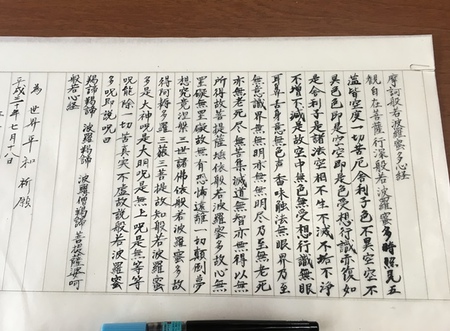 摩訶般若波羅蜜多心経
観自在菩薩行深般若波羅蜜多時照見五
蘊皆空度一切苦厄舎利子色不異空空不
異色色即是空空即是色受想行識亦復如
是舎利子是諸法空相不生不滅不垢不浄
不増不減是故空中無色無受想行識無眼
耳鼻舌身意無色声香味触法無眼界乃至
無意識界無無明亦無無明尽乃至無老死
亦無老死尽無苦集滅道無智亦無得以無
所得故菩提薩埵依般若波羅蜜多故心無
罣礙無罣礙故無有恐怖遠離一切顛倒夢
想究竟涅槃三世諸佛依般若波羅蜜多故
得阿耨多羅三藐三菩提故知般若波羅蜜
多是大神呪是大明呪是無上呪是無等等
呪能除一切苦真実不虚故説般若波羅蜜
多呪即説呪曰
羯諦羯諦 波羅羯諦 波羅僧羯諦 菩提薩婆訶
般若心経
為 世界平和祈願
平成三十年七月十八日